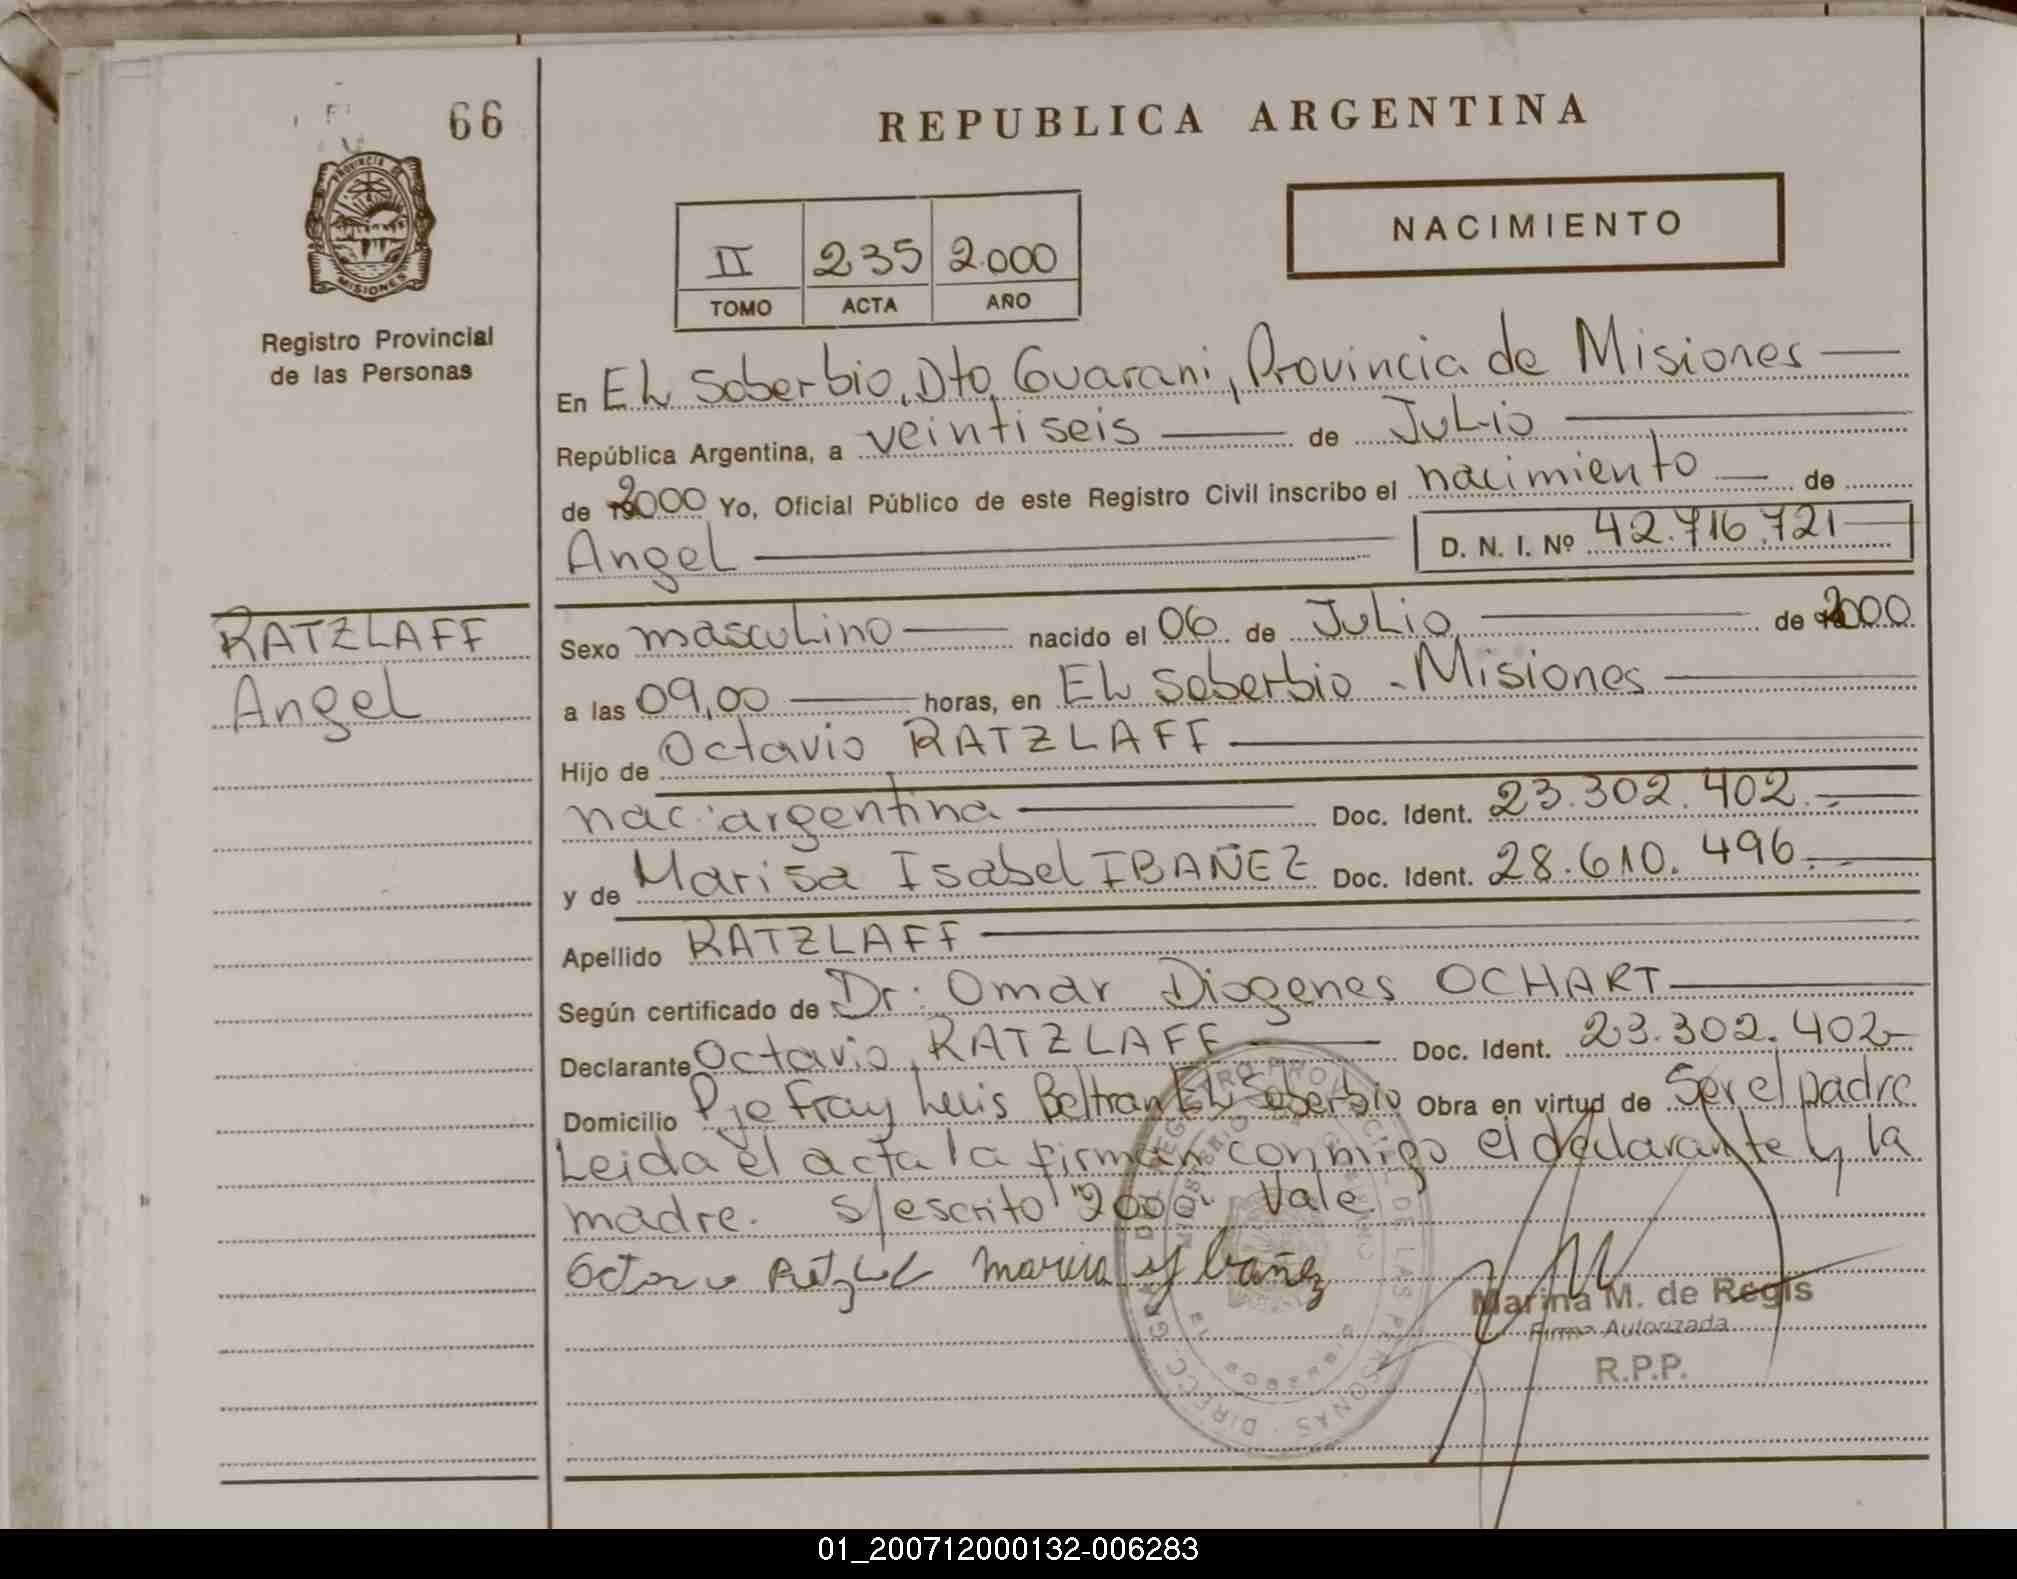 66
REPUBLICA ARGENTINA
PROVINCIA DE
MISIONES
Registro Provincial
de las Personas
II 235 2.000
TOMO ACTA AÑO
NACIMIENTO
En EL Soberbio, Dto Guarani, Provincia de Misiones
República Argentina, a veintiseis de Julio
de 2000 Yo, Oficial Público de este Registro Civil inscribo el nacimiento de
Angel D. N. I. Nº 42.716.721
RATZLAFF
Angel
Sexo masculino nacido el 06 de Julio de 2000
a las 09,00 horas, en EL Soberbio - Misiones
Hijo de Octavio RATZLAFF
nac. argentina Doc. Ident. 23.302.402.-
y de Marisa Isabel IBAÑEZ Doc. Ident. 28.610.496.-
Apellido RATZLAFF
Según certificado de Dr. Omar Diogenes OCHART
Declarante Octavio RATZLAFF Doc. Ident. 23.302.402-
Domicilio Pje Fray Luis Beltran EL Soberbio Obra en virtud de Ser el padre
Leida el acta la firman conmigo el declarante y la
madre. s/escrito "2000" Vale
Marina M. de Regis
Firma Autorizada
R.P.P.
01_200712000132-006283